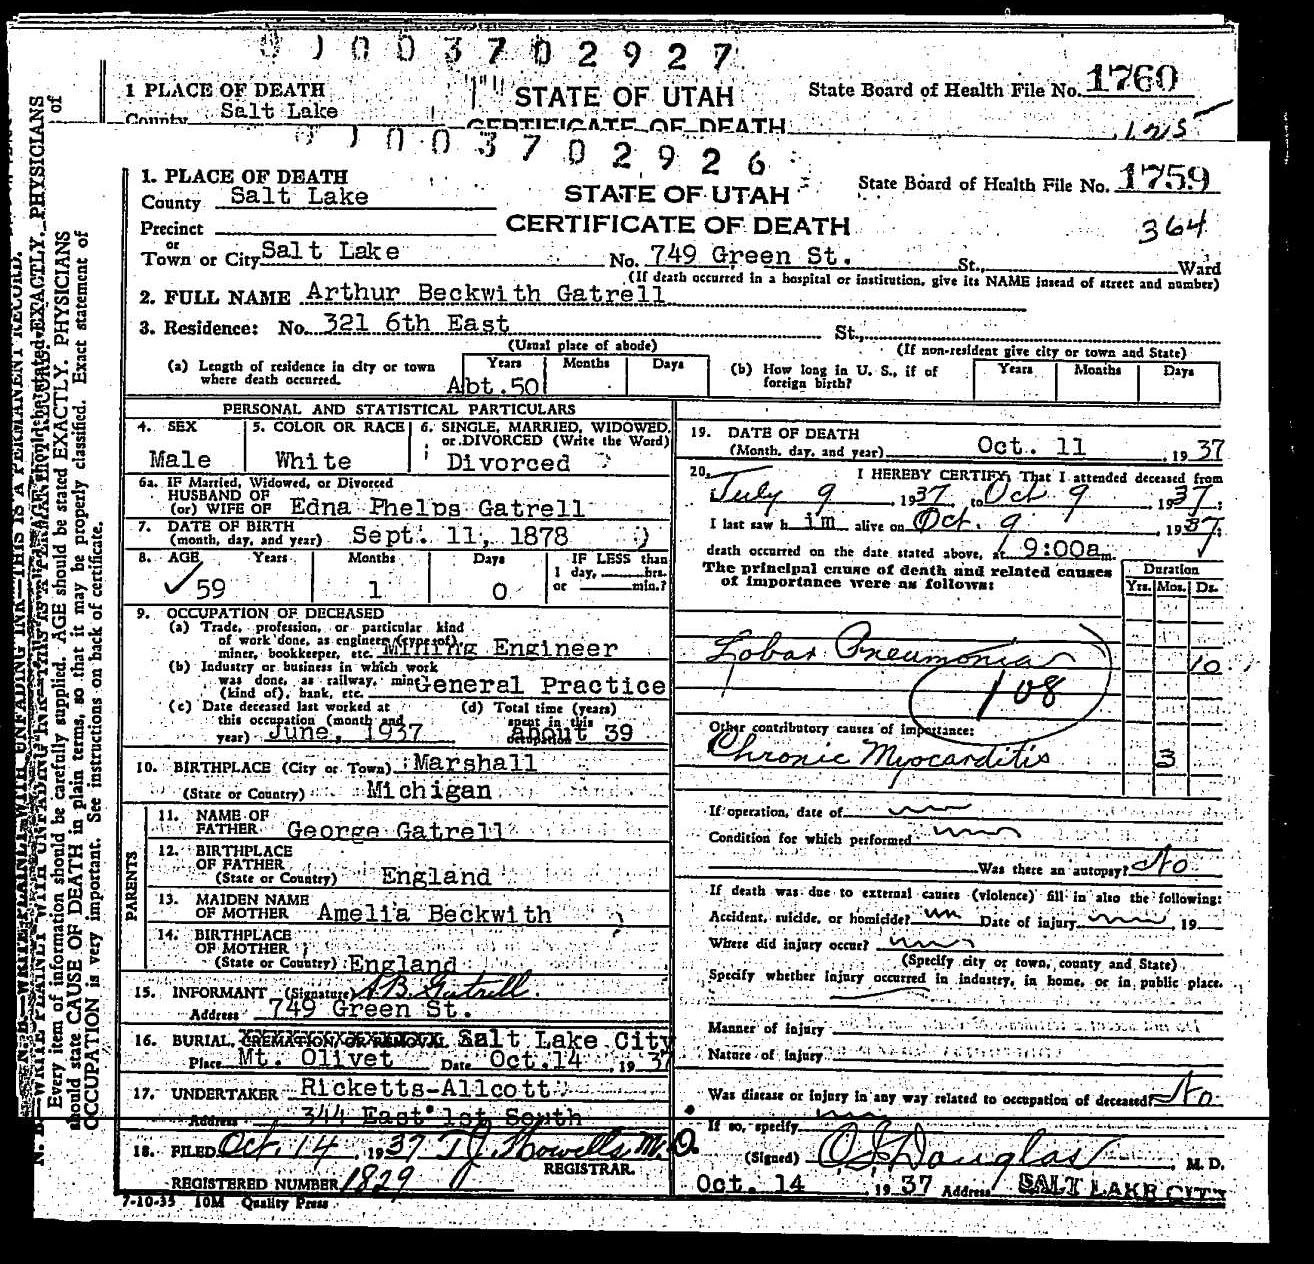 0 1 0 0 3 7 0 2 9 2 7
1 PLACE OF DEATH
STATE OF UTAH
State Board of Health File No. 1760
County Salt Lake
CERTIFICATE OF DEATH
125
0 1 0 0 3 7 0 2 9 2 6
1. PLACE OF DEATH
STATE OF UTAH
State Board of Health File No. 1759
County Salt Lake
CERTIFICATE OF DEATH
364
Precinct
or
Town or City Salt Lake No. 749 Green St. St., Ward
(If death occurred in a hospital or institution, give its NAME insead of street and number)
2. FULL NAME Arthur Beckwith Gatrell
3. Residence: No. 321 6th East St.,
(Usual place of abode)
(If non-resident give city or town and State)
(a) Length of residence in city or town where death occurred. Years Months Days
Abt. 50
(b) How long in U. S., if of foreign birth? Years Months Days
PERSONAL AND STATISTICAL PARTICULARS
4. SEX
Male
5. COLOR OR RACE
White
6. SINGLE, MARRIED, WIDOWED, or DIVORCED (Write the Word)
Divorced
6a. IF Married, Widowed, or Divorced
HUSBAND OF
(or) WIFE OF Edna Phelps Gatrell
7. DATE OF BIRTH
(month, day, and year) Sept. 11, 1878
8. AGE Years Months Days IF LESS than
1 day, hrs.
or min.?
59 1 0
9. OCCUPATION OF DECEASED
(a) Trade, profession, or particular kind
of work done, as engineer (type of)
miner, bookkeeper, etc. Mining Engineer
(b) Industry or business in which work
was done, as railway, mine
(kind of), bank, etc. General Practice
(c) Date deceased last worked at
this occupation (month and
year) June, 1937
(d) Total time (years)
spent in this
occupation about 39
10. BIRTHPLACE (City or Town) Marshall
(State or Country) Michigan
PARENTS
11. NAME OF
FATHER George Gatrell
12. BIRTHPLACE
OF FATHER
(State or Country) England
13. MAIDEN NAME
OF MOTHER Amelia Beckwith
14. BIRTHPLACE
OF MOTHER
(State or Country) England
15. INFORMANT (Signature) A B Gatrell.
Address 749 Green St.
16. BURIAL, CREMATION OR REMOVAL Salt Lake City
Place Mt. Olivet Date Oct. 14 , 19 37
17. UNDERTAKER Ricketts-Allcott
Address 344 East 1st South
18. FILED Oct. 14 , 19 37 T J Howells M.D.
REGISTRAR.
REGISTERED NUMBER 1829
7-10-35 10M Quality Press
19. DATE OF DEATH
(Month, day, and year) Oct. 11 , 19 37
20. I HEREBY CERTIFY, That I attended deceased from
July 9 , 1937 to Oct 9 , 1937;
I last saw h im alive on Oct. 9 , 1937;
death occurred on the date stated above, at 9:00a m.
The principal cause of death and related causes
of importance were as follows:
Duration
Yrs. Mos. Ds.
Lobar Pneumonia 10
108
Other contributory causes of importance:
Chronic Myocarditis 3
If operation, date of
Condition for which performed
Was there an autopsy? No
If death was due to external causes (violence) fill in also the following:
Accident, suicide, or homicide? Date of injury , 19
Where did injury occur?
(Specify city or town, county and State)
Specify whether injury occurred in industry, in home, or in public place.
Manner of injury
Nature of injury
Was disease or injury in any way related to occupation of deceased? No
If so, specify
(Signed) O J Douglas , M. D.
Oct. 14 , 19 37 Address SALT LAKE CITY
N. B.—WRITE PLAINLY WITH UNFADING INK—THIS IS A PERMANENT RECORD.
Every item of information should be carefully supplied. AGE should be stated EXACTLY. PHYSICIANS
should state CAUSE OF DEATH in plain terms, so that it may be properly classified. Exact statement of
OCCUPATION is very important. See instructions on back of certificate.